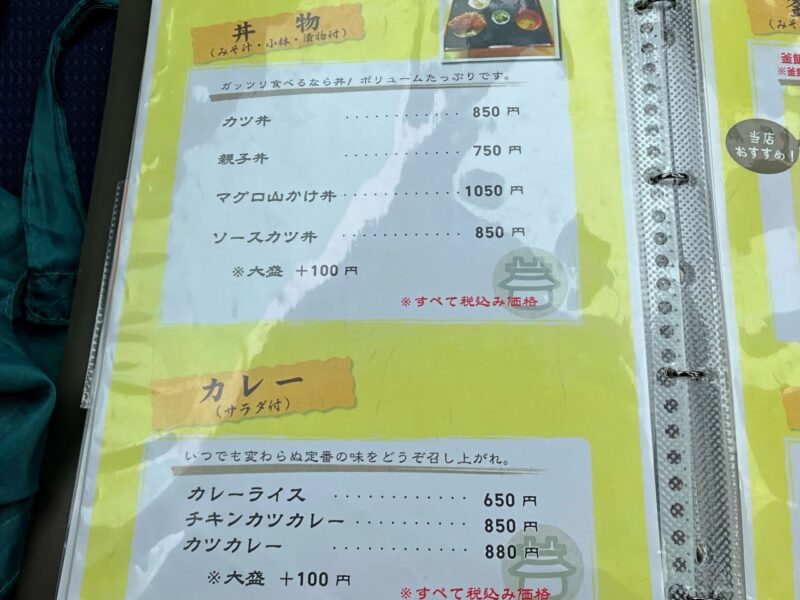 丼物
(みそ汁・小鉢・漬物付)
ガッツリ食べるなら丼! ボリュームたっぷりです。
カツ丼 ・・・・・・・・・・・・ 850 円
親子丼 ・・・・・・・・・・・・ 750 円
マグロ山かけ丼 ・・・・・・・・・・・・ 1050 円
ソースカツ丼 ・・・・・・・・・・・・ 850 円
※大盛 +100 円
※すべて税込み価格
カレー
(サラダ付)
いつでも変わらぬ定番の味をどうぞ召し上がれ。
カレーライス ・・・・・・・・・・・・ 650 円
チキンカツカレー ・・・・・・・・・・・・ 850 円
カツカレー ・・・・・・・・・・・・ 880 円
※大盛 +100 円
※すべて税込み価格
当店
おすすめ!